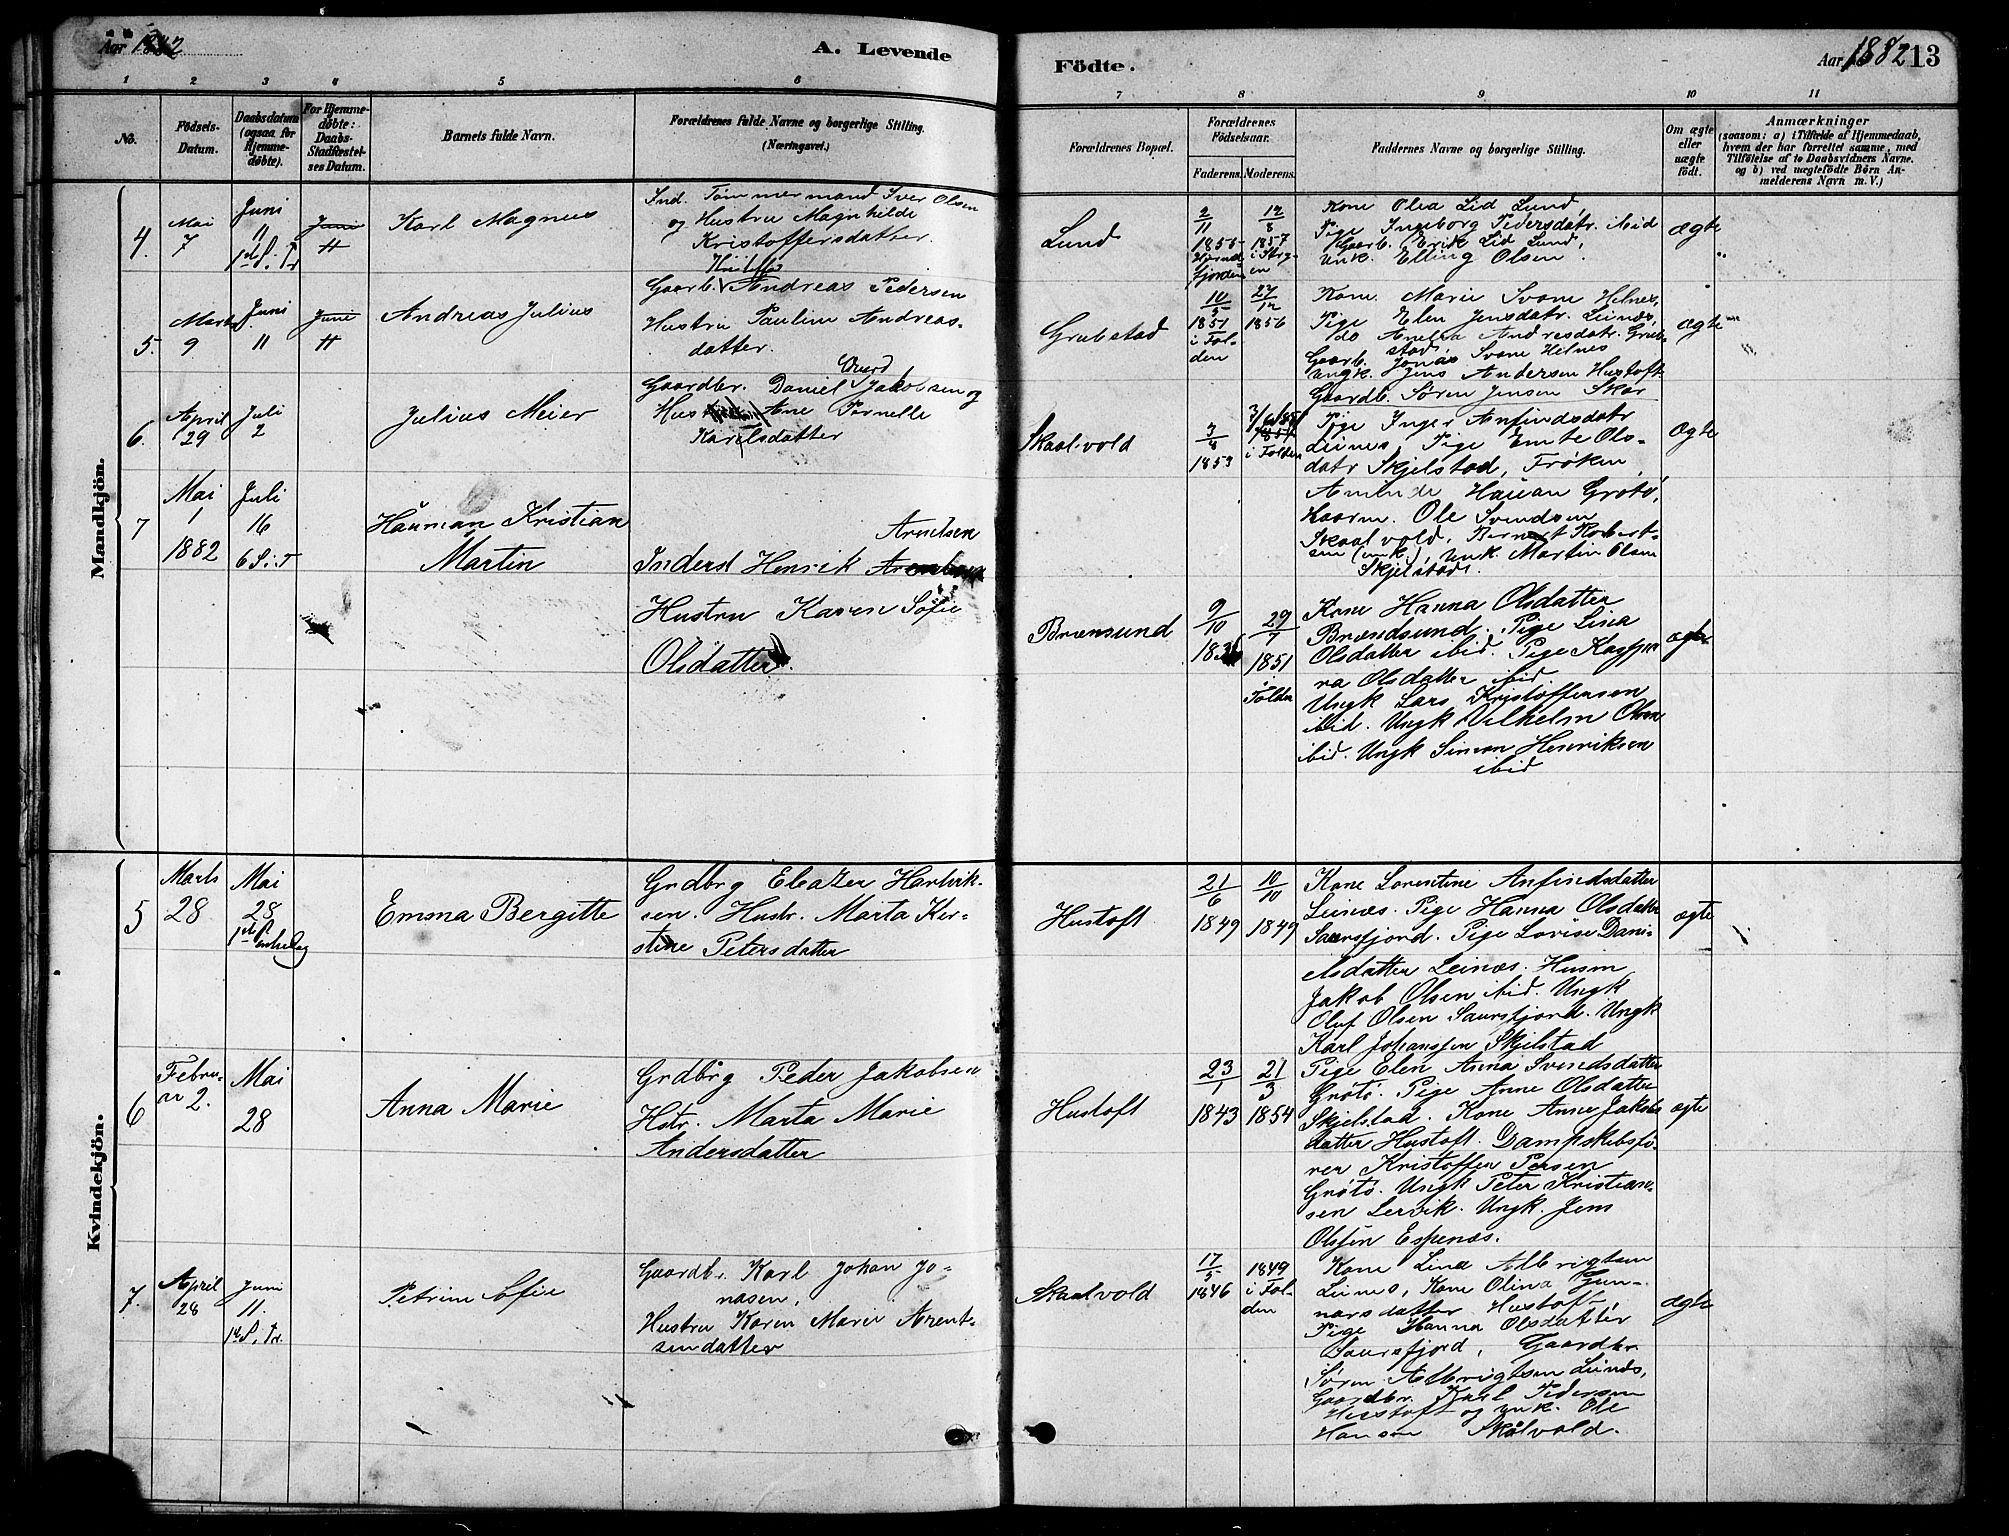 Aar 1882
A. Levende
Födte.
Aar 1882 13
1 2 3 4 5 6 7 8 9 10 11
No.
Födsels-
Datum.
Daabsdatum
(ogsaa for
Hjemme-
döbte).
For Hjemme-
döbte:
Daabs-
Stadfæstel-
ses Datum.
Barnets fulde Navn.
Forældrenes fulde Navne og borgerlige Stilling.
(Næringsvei.)
Forældrenes Bopæl.
Forældrenes
Födselsaar.
Faderens. Moderens.
Faddernes Navne og borgerlige Stilling.
Om ægte
eller
uægte
födt.
Anmærkninger
(saasom: a) i Tilfælde af Hjemmedaab,
hvem der har forrettet samme, med
Tilföielse af to Daabsvidners Navne.
og b) ved uægtefödte Börn An-
melderens Navn m. V.)
Mandkjön.
4.
Mai
7
Juni
11
1ste S. Tr
Juni
11
Karl Magnus
Ind. Tömmermand Iver Olsen
og Hustru Magnhilde
Kristoffersdatter.
Lund
2/11
1856
12/8
1857
i Stryn
Kone Olea Lid Lund,
Pige Ingeborg Pedersdatr. ibid
Gaarb. Erik Lid Lund,
Unk. Elling Olsen.
ægte
5.
Marts
9
Juni
11
Juni
11
Andreas Julius
Gaarb. Andreas Pedersen
Hustru Pauline Andreas-
datter.
Grubstad
10/5
1851
i Fol-
den
27/12
1856
Kone Marie Svane Helnes,
Pige Elen Jensdatr. Leines,
do Anetta Andreasdatr. Grub-
stad,
Gaarb. Jonas Svane Helnes
Ungk. Jens Andersen Hustoft
Gaardb. Sören Jensen Skar
ægte
6.
April
29
Juli
2
Julius Meier
Gaardbr. Daniel Jakobsen og
Hust Ane Pernelle
Karlsdatter
Skaalvold
3/4
1853
i Folden
Pige Inger Anfindsdatr
Leines, Pige Emte Ols-
datr Skjelstad, Fröken
Aminde Hauan Grötö,
Kaarm. Ole Svendsen
Skaalvold, Bernert Robert-
sen (unk.), unk. Martin Olsen
Skjelstad.
ægte
7
Mai
1
1882
Juli
16
6 S. i T
Hauman Kristian
Martin
Arntsen
Inderst Henrik
Hustru Karen Sofie
Olsdatter.
Brænsund
9/10
29/7
1851
Folden
Kone Hanna Olsdatter
Brændsund. Pige Lina
Olsdatter ibid. Pige Kaspa
ra Olsdatter ibid
Ungk Lars Kristoffersen
ibid. Ungk Vilhelm Olsen
ibid. Ungk Simon Henriksen
ibid
ægte
Kvindekjön.
5
Marts
28
Mai
28
1ste Pintsedag
Emma Bergitte
Grdbrg Eleazer Hartvik-
sen. Hustr. Marta Ker-
stine Petersdatter
Hustoft
21/6
1849
10/10
1849
Kone Lorentine Anfindsdatter
Leinæs. Pige Hanna Olsdatr
Saursfjord. Pige Lovise Dani-
elsdatter Leinæs. Husm
Jakob Olsen ibid. Ungk
Oluf Olsen Saursfjord. Ungk
Karl Johanssen Skjelstad
ægte
6
Febru-
2.
Mai
28
Anna Marie
Grdbrg Peder Jakobsen
Hstr. Marta Marie
Andersdatter
Hustoft
23/1
1843
21/3
1854
Pige Elen Anna Svendsdatter
Grötö. Pige Anne Olsdatter
Skjelstad. Kone Anne Jakobs
datter Hustoft. Dampskibsfö-
rer Kristoffer Persen
Grötö. Ungk Peter Kristian-
sen Lervik. Ungk. Jens
Olssen Espenæs.
ægte
7.
April
28
Juni
11.
1ste S. Tr.
Petrine Sofie
Gaardbr. Karl Johan Jo-
nasen,
Hustru Karen Marie Arent-
sendatter
Skaalvold
17/5
1846
1849
i Fol-
den
Kone Lina Albrigtsen
Leines, Kone Olina Gun-
narsdatter Hustoft
Pige Hanna Olsdatter
Saursfjord, Gaardbr.
Sören Albrigtsen Leines,
Gaardbr. Karl Pedersen
Hustoft og unk. Ole
Hansen Skålvold.
ægte